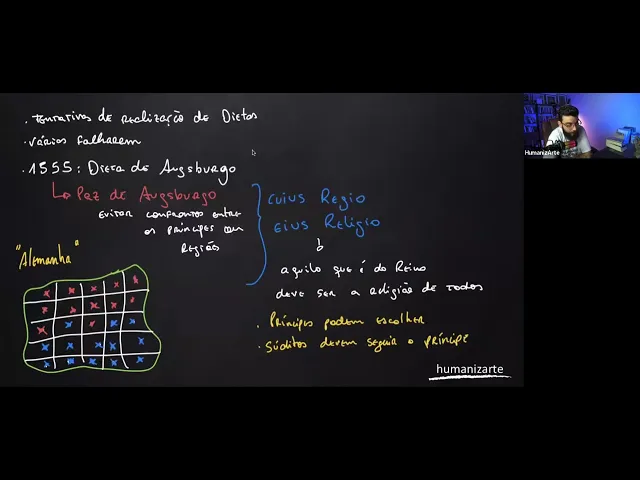 . Tentativas de realização de Dietas
. Várias falharam
. 1555: Dieta de Augsburgo
↳ Paz de Augsburgo
Evitar confrontos entre
os príncipes com
região
"Alemanha"
Cuius Regio
Eius Religio
aquilo que é do Reino
deve ser a religião de todos
. Príncipes podem escolher
. Súditos devem seguir o príncipe
humanizarte
HumanizArte